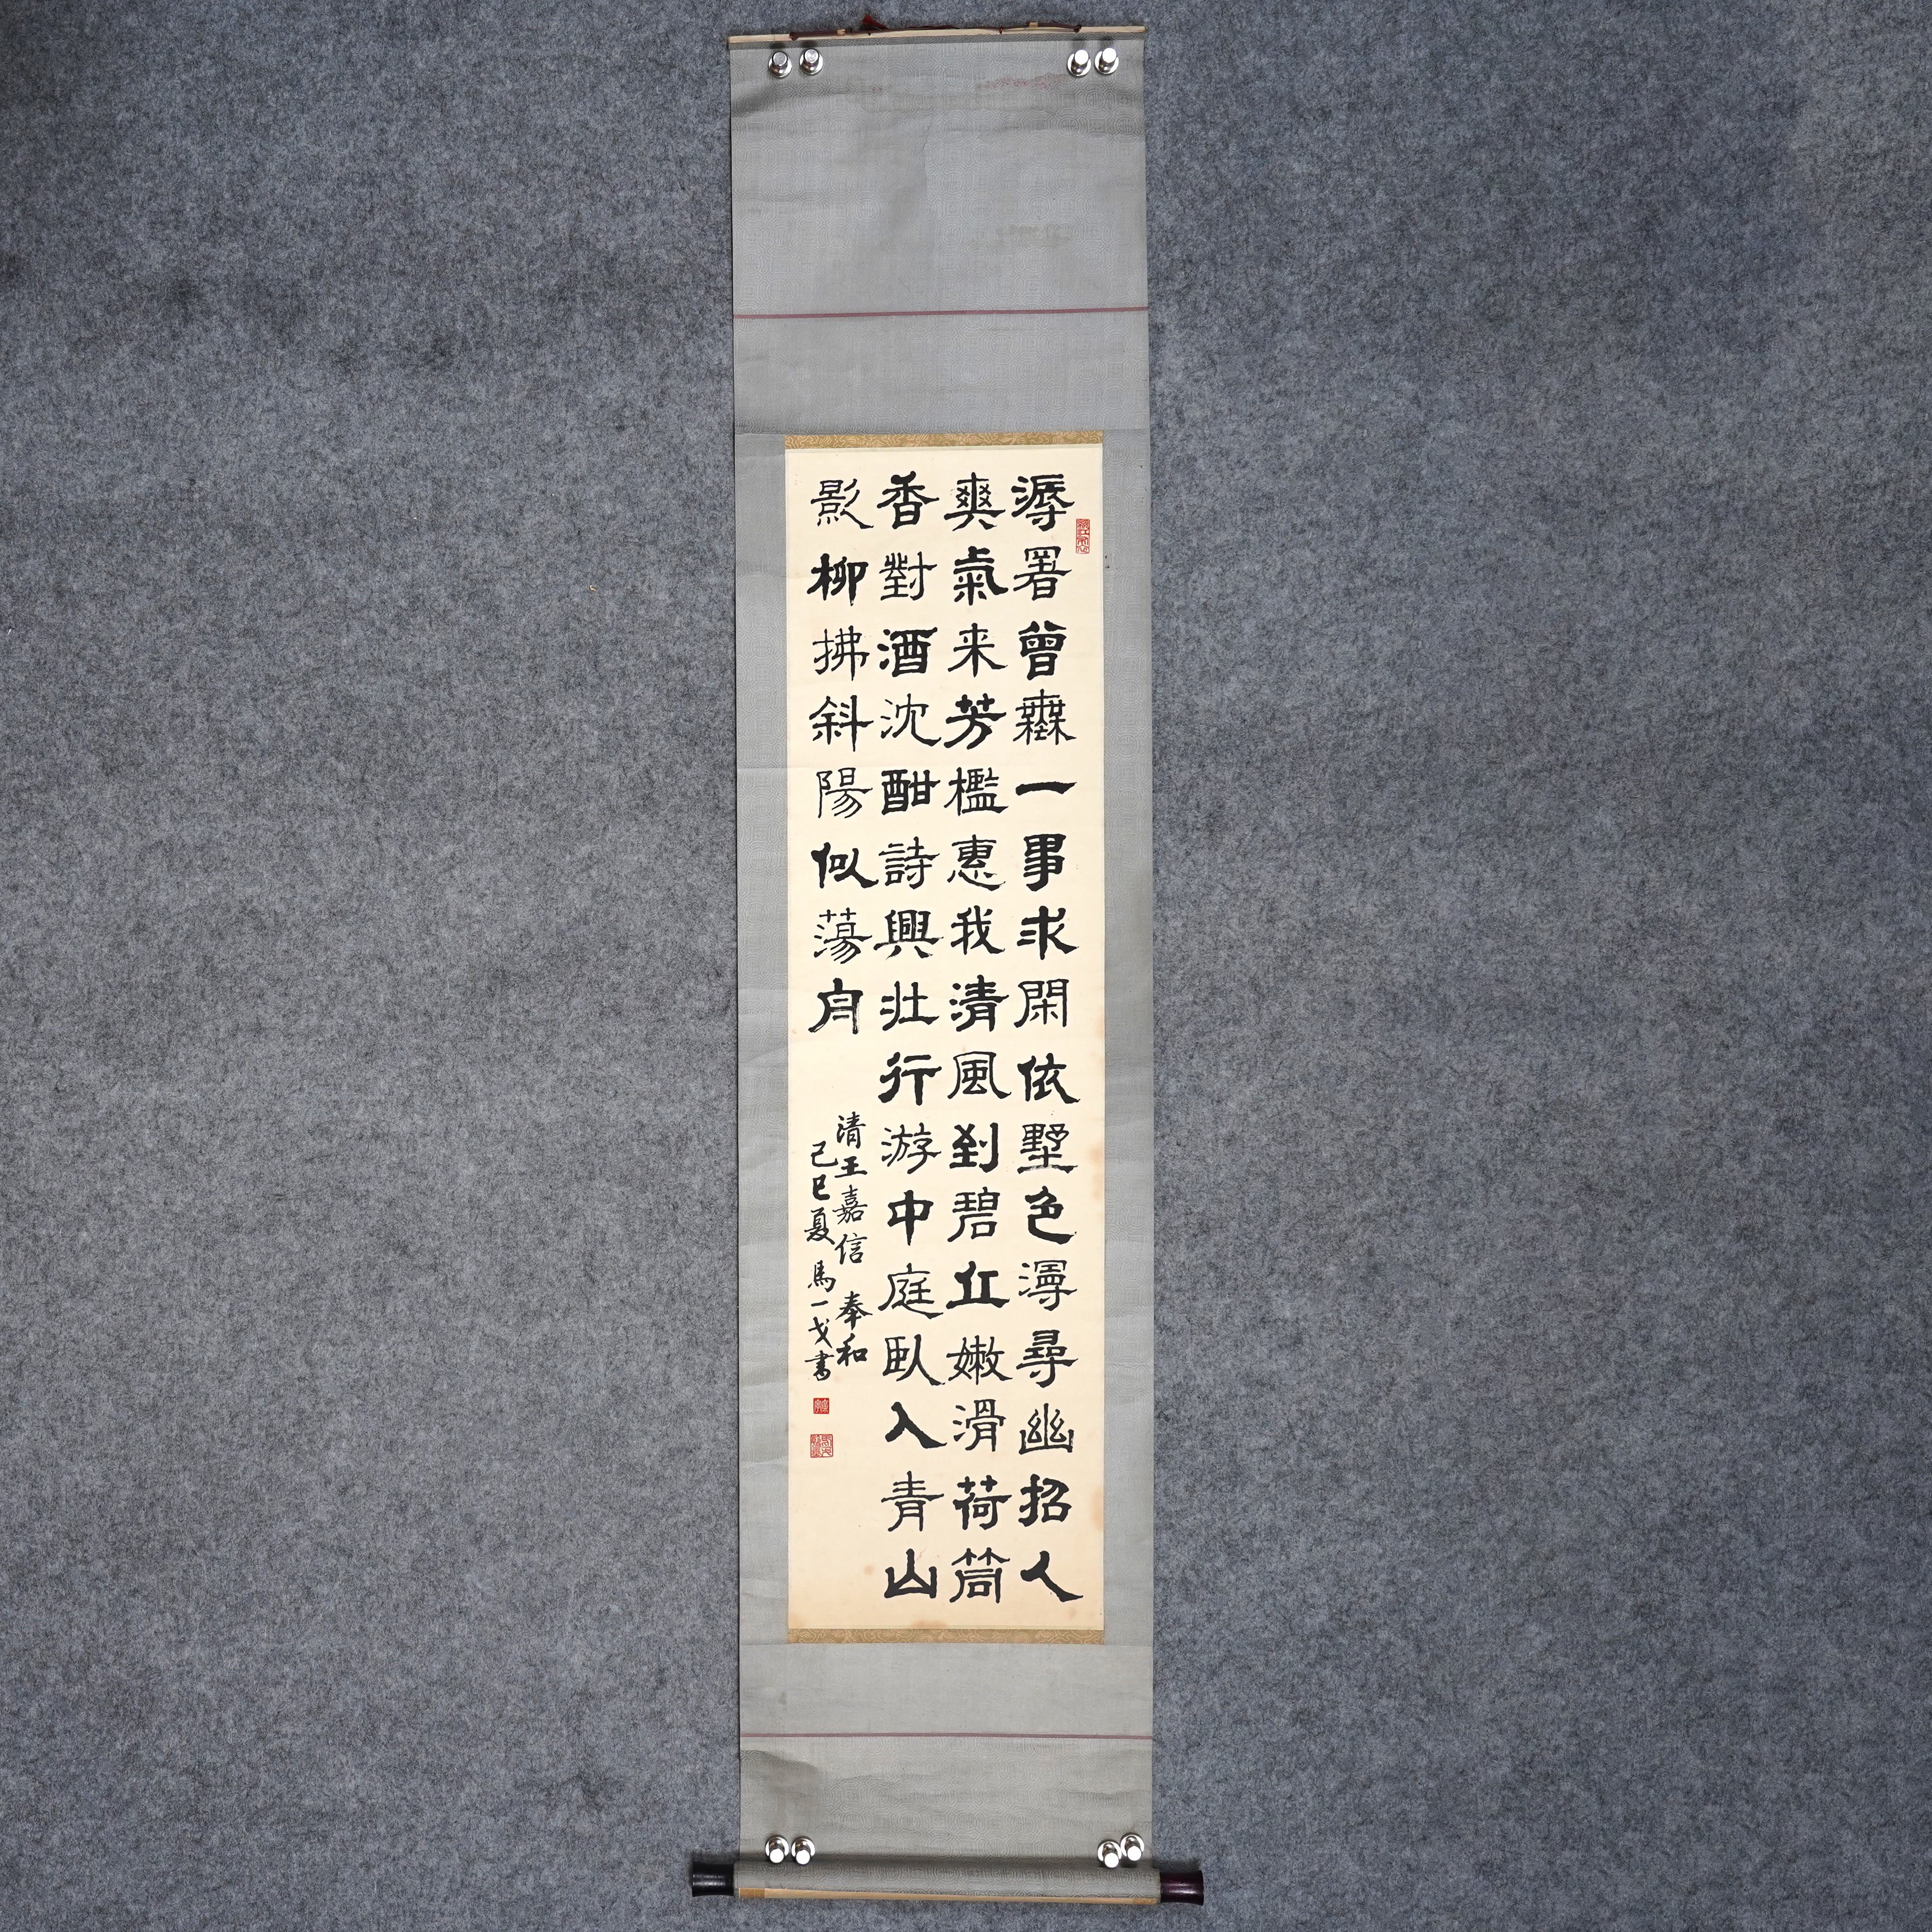 溽署曾橆一事求閑依墅色潭尋幽招人
爽氣来芳檻惠我清風到碧丘嫩滑荷筒
香對酒沈酣詩興壯行游中庭臥入青山
影柳拂斜陽似蕩舟
清王嘉信 奉和
己巳夏 馬一戈書